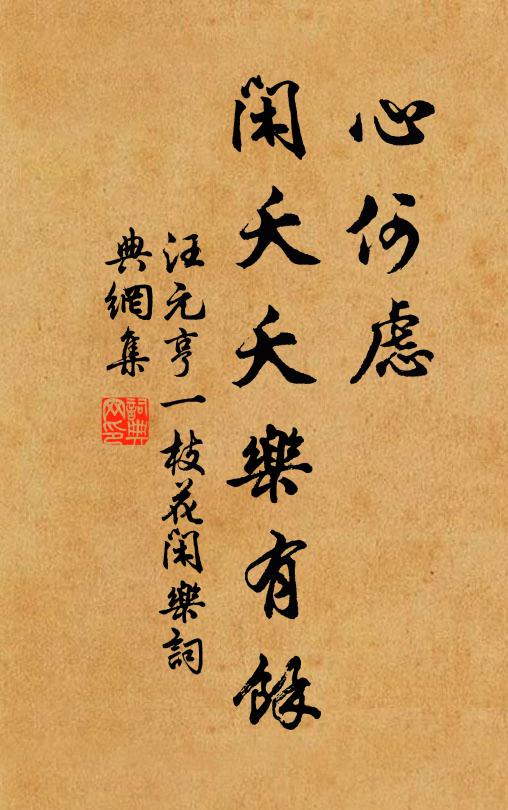 心何慮
閑夭夭樂有餘
汪元亨一枝花閑樂詞
典網集
詞典
网印